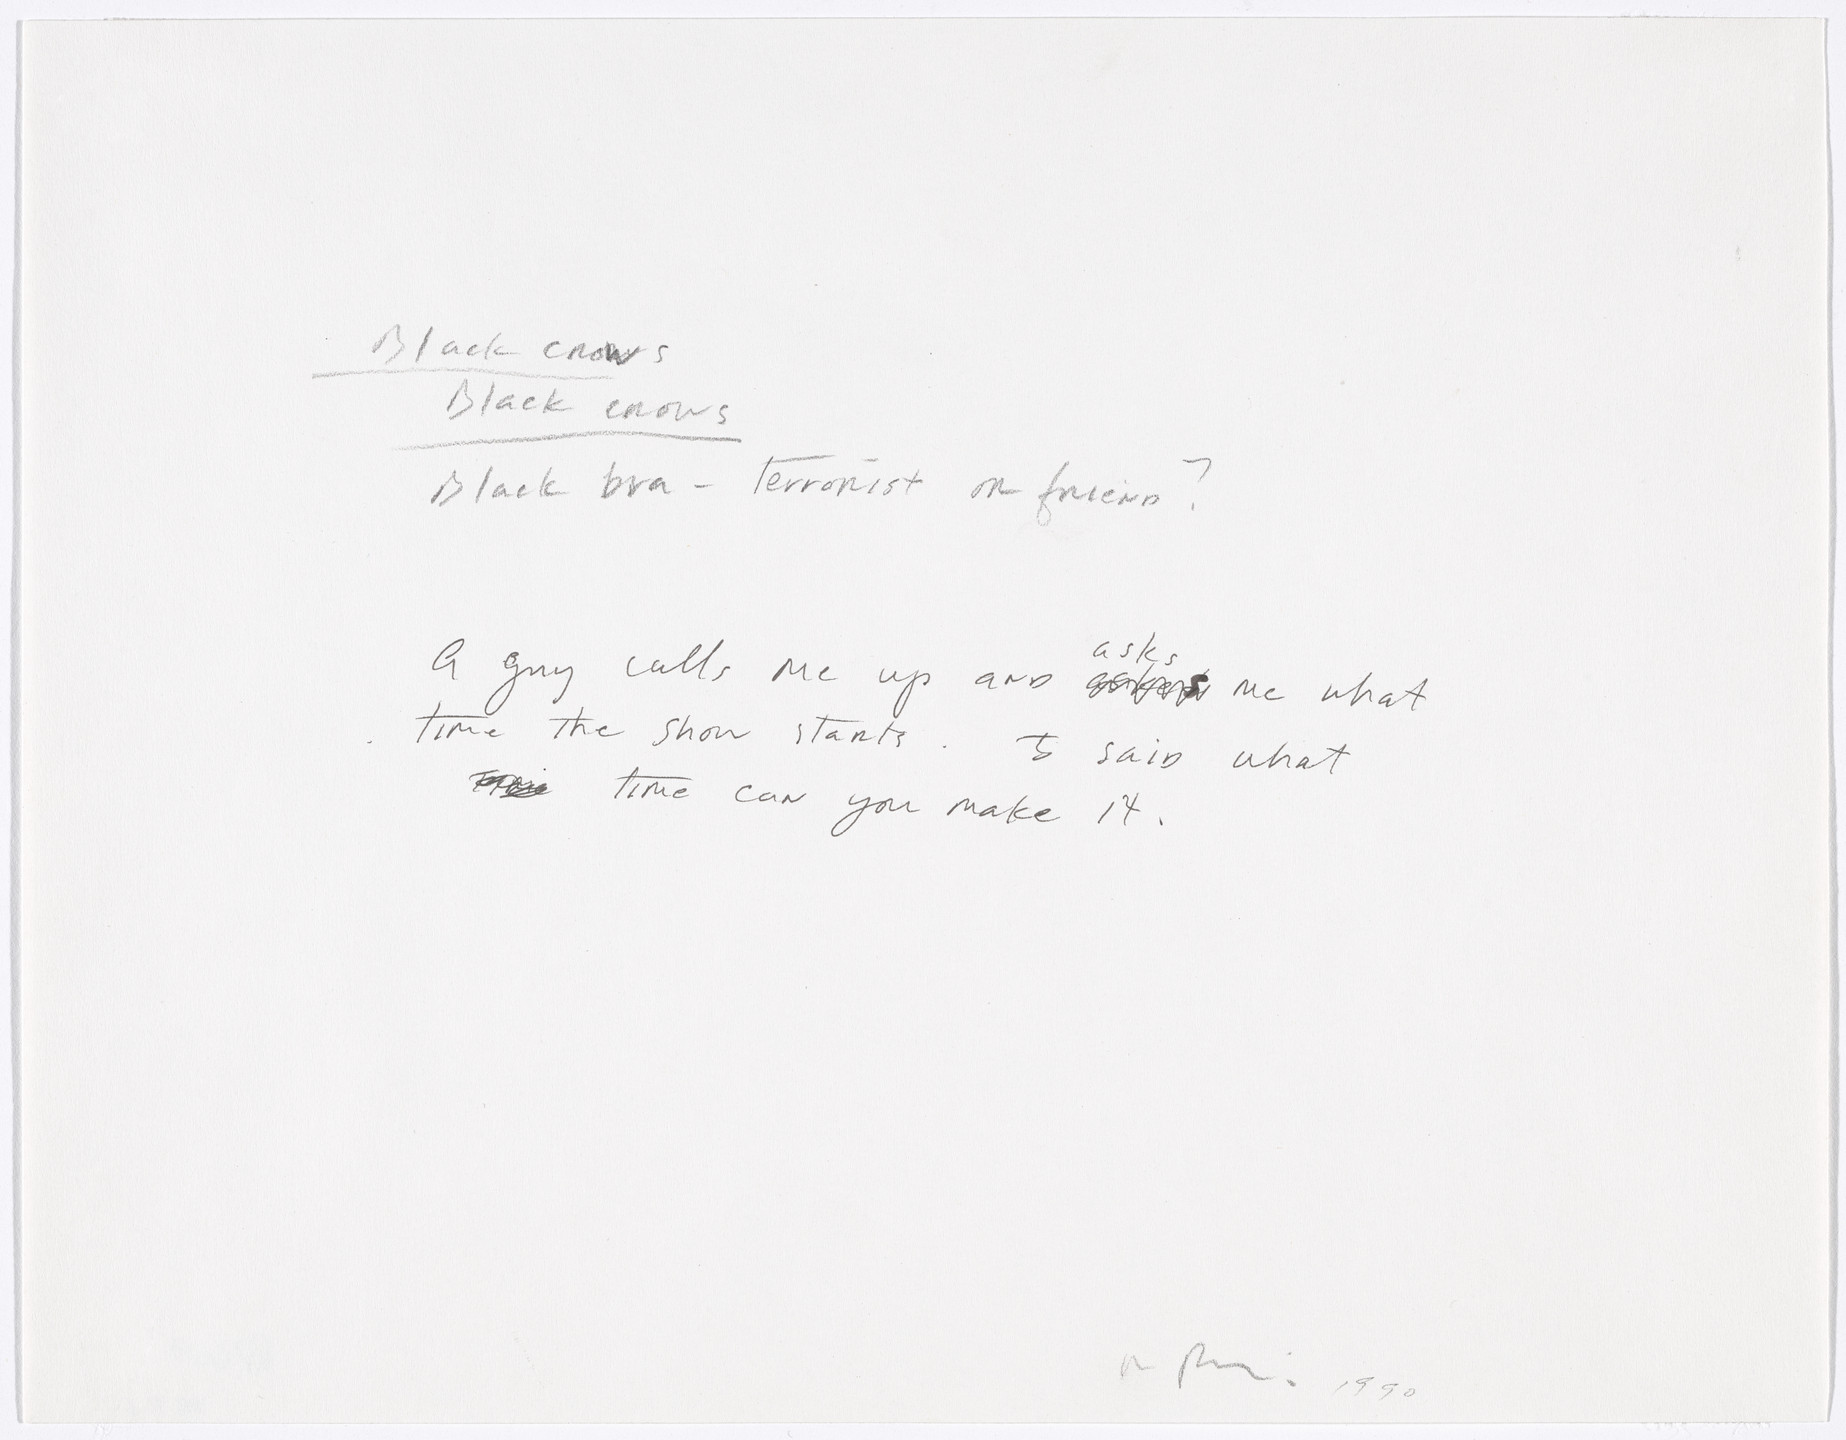 Black crows
Black crows
Black bra - Terrorist or friend?
asks
A guy calls me up and me what
time the show starts. I said what
time can you make it.
R Prince 1990